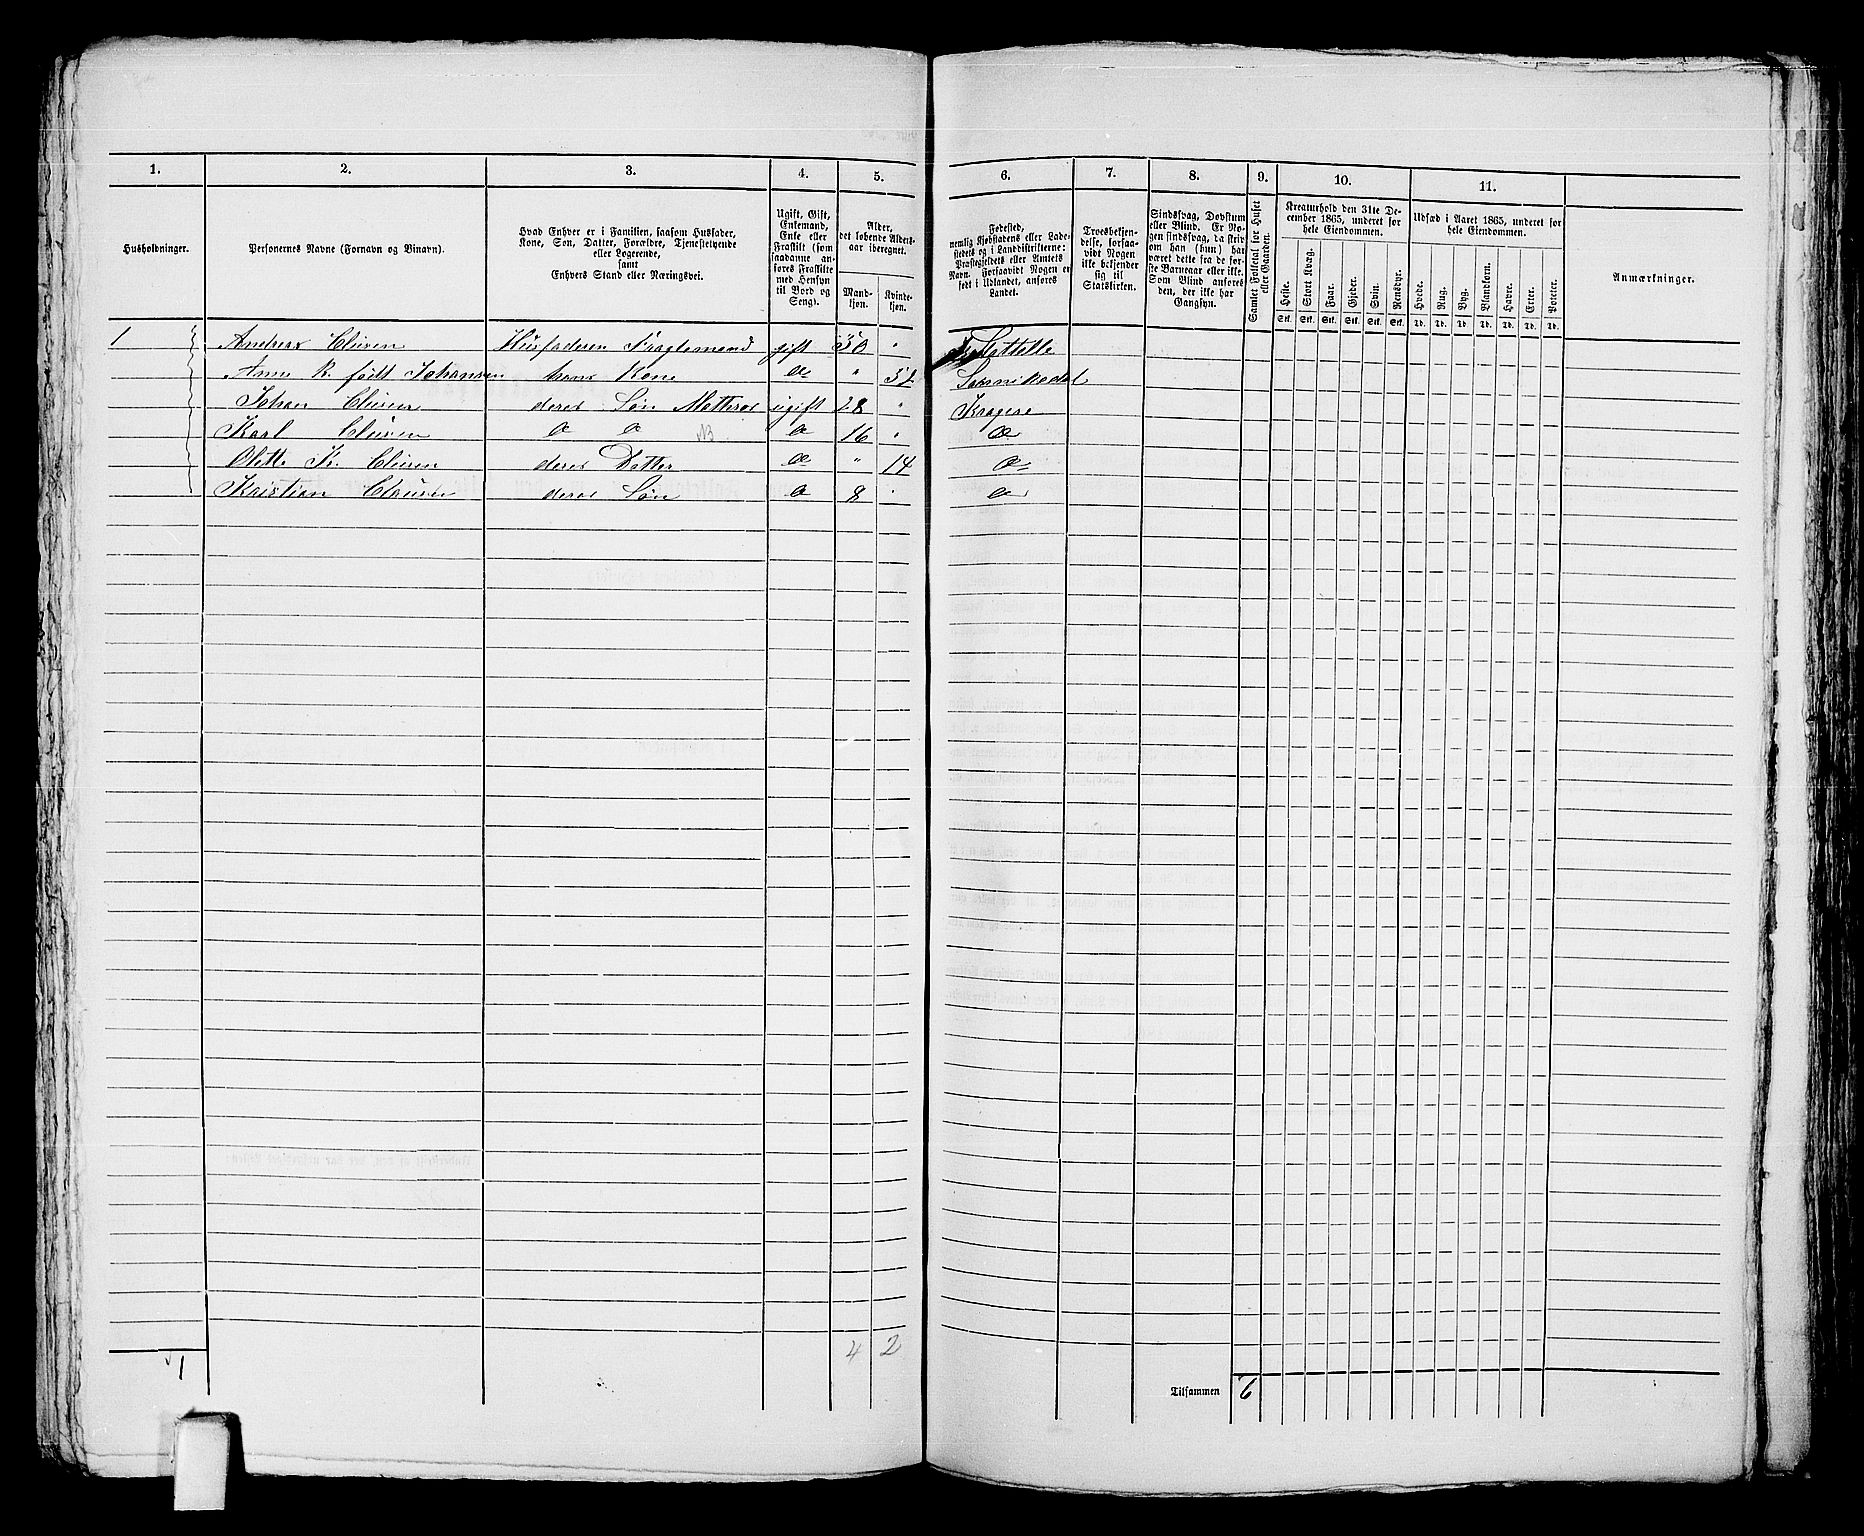 1.
2.
3.
4.
5.
6.
7.
8.
9.
10.
11.
Husholdninger.
Personernes Navne (Fornavn og Binavn).
Hvad Enhver er i Familien, saasom Husfader,
Kone, Søn, Datter, Forældre, Tjenstetyende
eller Logerende,
samt
Enhvers Stand eller Næringsvei.
Ugift, Gift,
Enkemand,
Enke eller
Fraskilt (som
saadanne an-
føres Fraskilte
med Hensyn
til Bord og
Seng).
Alder,
det løbende Alders-
aar iberegnet.
Mand-
kjøn.
Kvinde-
kjøn.
Fødested,
nemlig Kjøbstadens eller Lade-
stedets og i Landdistrikterne:
Præstegjeldets eller Amtets
Navn. Forsaavidt Nogen er
født i Udlandet, anføres
Landet.
Troesbekjen-
delse, forsaa-
vidt Nogen
ikke bekjender
sig til
Statskirken.
Sindssvag, Døvstum
eller Blind. Er No-
gen sindssvag, da skriv
om han (hun) har
været dette fra de før-
ste Barneaar eller ikke.
Som Blind anføres
den, der ikke har
Gangsyn.
Samlet Folketal for Huset
eller Gaarden.
Kreaturhold den 31te De-
cember 1865, underet for
hele Eiendommen.
Heste.
Stort Kvæg.
Faar.
Gjeder.
Svin.
Rensdyr.
Stk. Stk. Stk. Stk. Stk. Stk.
Udsæd i Aaret 1865, underet for
hele Eiendommen.
Hvede.
Rug.
Byg.
Blandkorn.
Havre.
Erter.
Poteter.
Td. Td. Td. Td. Td. Td. Td.
Anmærkninger.
1 Andreas Clusen Husfaderen gift 50 "
Anne K. født Johansen hans Kone " 52
Johan Clusen deres Søn Mathros ugift 28 " Kragerø
Karl Clusen 16 "
Olette K. Clusen deres Datter " 14
Kristian Clausen deres Søn 8 "
1
4 2
Tilsammen 6